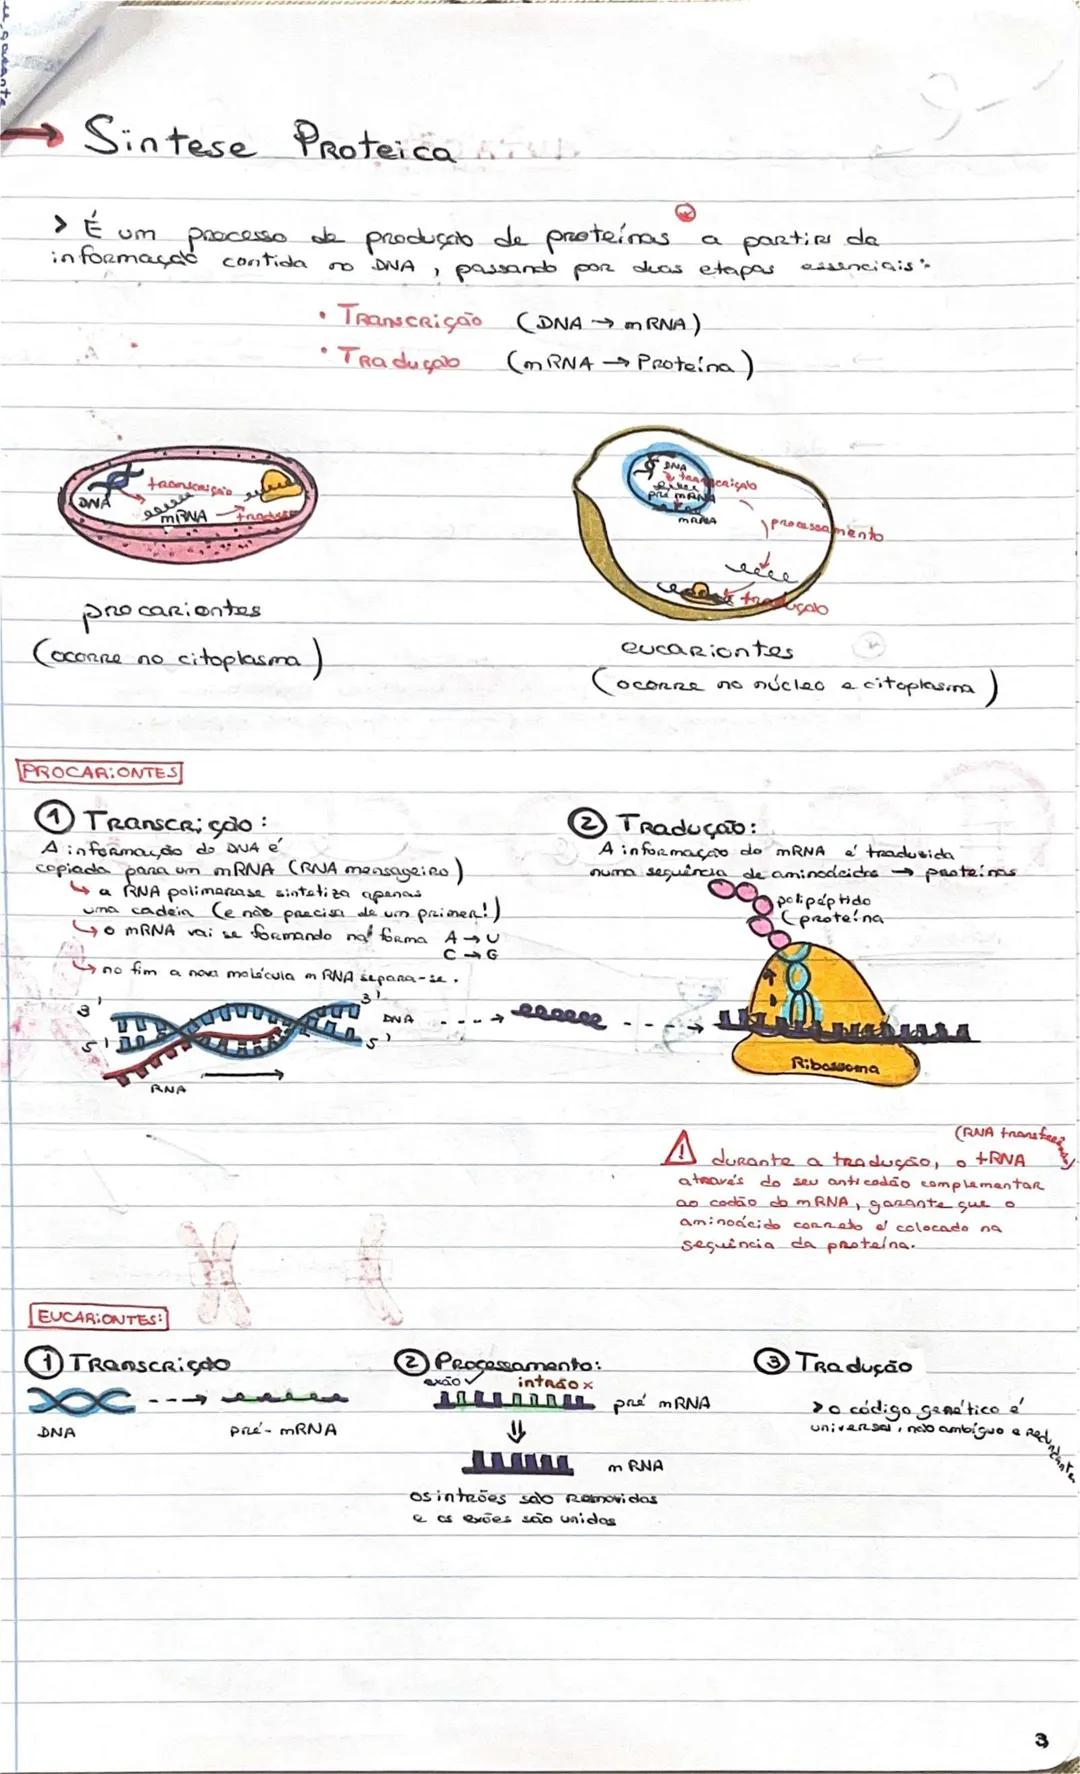 → Sintese Proteica
> É um processo de produção de proteínas a partir da
informação contida no DNA, passando por duas etapas essenciais:
• Transcrição (DNA → mRNA)
• Tradução (mRNA → Proteína)
DNA
transcrição
mRNA
tradução
procariontes
(ocorre no citoplasma)
DNA
transcrição
pré mRNA
mRNA
processamento
tradução
eucariontes
(ocorre no núcleo e citoplasma)
PROCARIONTES
1 Transcrição:
A informação do DNA é
copiada para um mRNA (RNA mensageiro)
↳ a RNA polimerase sintetiza apenas
uma cadeia (e não precisa de um primer!)
↳ o mRNA vai se formando na forma A → U
C → G
↳ no fim a nova molécula mRNA separa-se.
3' 3'
DNA
5' 5'
RNA
2 Tradução:
A informação do mRNA é traduzida
numa sequência de aminoácidos → proteínas
polipéptido
(proteína
Ribossoma
(RNA transferência)
! durante a tradução, o tRNA
através do seu anticodão complementar
ao codão do mRNA, garante que o
aminoácido correto é colocado na
sequência da proteína.
EUCARIONTES:
1 Transcrição
DNA
pré-mRNA
2 Processamento:
exão ✓ intrão x
pré mRNA
⇓
mRNA
os intrões são removidos
e os exões são unidos
3 Tradução
> o código genético é
universal, não ambíguo e redundante
3